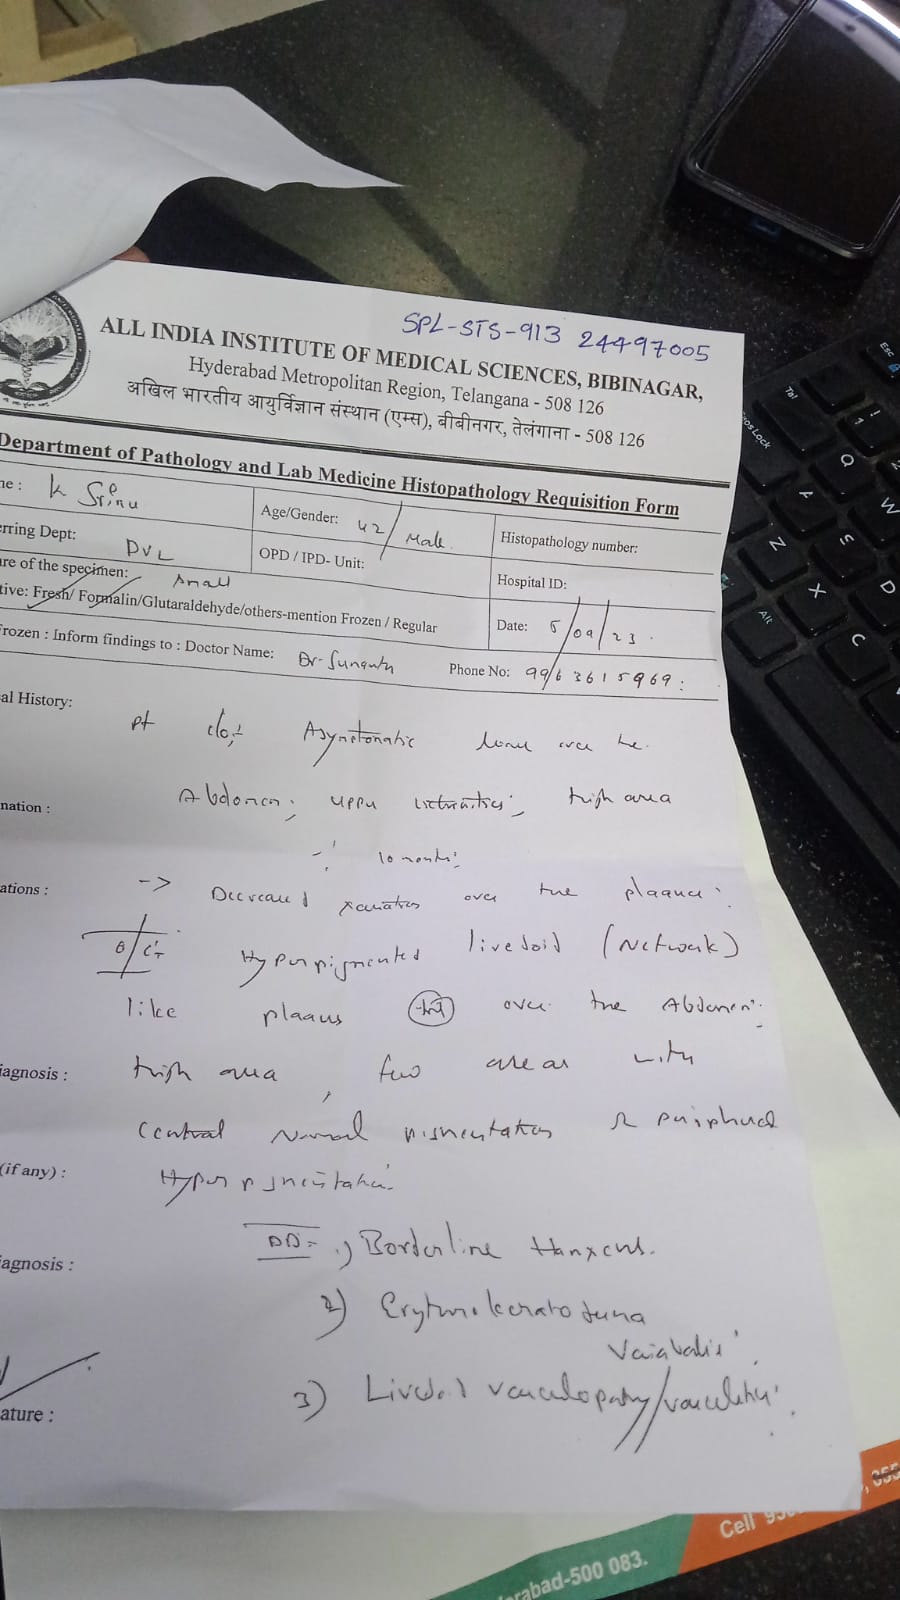 SPL-STS-913 24497005
ALL INDIA INSTITUTE OF MEDICAL SCIENCES, BIBINAGAR,
Hyderabad Metropolitan Region, Telangana - 508 126
अखिल भारतीय आयुर्विज्ञान संस्थान (एम्स), बीबीनगर, तेलंगाना - 508 126
Department of Pathology and Lab Medicine Histopathology Requisition Form
ne : K Srinu Age/Gender: 42/Male. Histopathology number:
rring Dept: DVL OPD / IPD- Unit: Hospital ID:
re of the specimen: Small
tive: Fresh/ Formalin/Glutaraldehyde/others-mention Frozen / Regular Date: 5/09/23.
Frozen : Inform findings to : Doctor Name: Phone No: 9963615969:
al History: pt c/o Asymptomatic over the
Abdomen, upper extremities, thigh area
nation :
10 months
ations : -> Decreased over the plaques.
O/E Hyperpigmented livedoid (Network)
like plaques over the Abdomen
iagnosis : thigh area, few areas with
Central Normal pigmentation & peripheral
(if any) : Hyperpigmentation.
DD= 1) Borderline Hansens.
iagnosis :
2) Erythrokeratoderma
Variabilis
3) Livedoid vasculopathy/vasculitis.
ature :
Cell
erabad-500 083.
Esc
Tab
Caps Lock
!
1
Q
A
Z
W
S
X
D
C
Alt